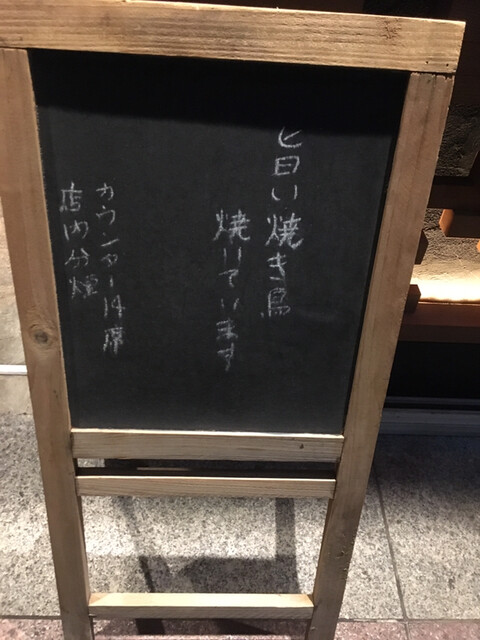 旨い焼き鳥
焼いています
カウンター14席
店内分煙